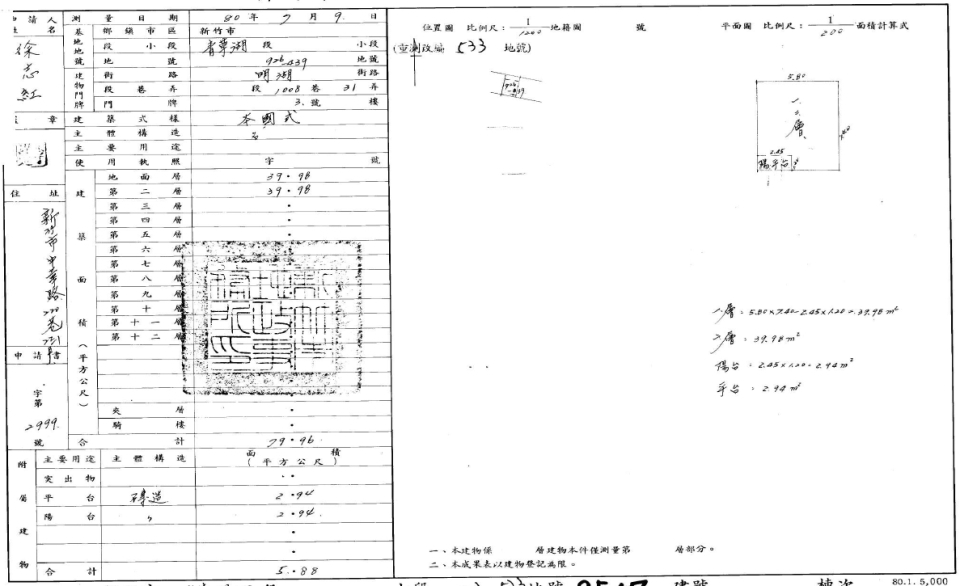 申請人
姓名
徐志紅
測量日期 80年7月9.日
基地地號
鄉鎮市區 新竹市
段小段 青草湖段 小段
地號 926-439 地號
建物門牌
街路 明湖 街路
段巷弄 段1008巷31弄
門牌 3.號樓
章
建築式樣 本國式
主體構造
主要用途
使用執照 字 號
住址
新竹市中華路
建築面積(平方公尺)
地面層 39.98
第二層 39.98
第三層 .
第四層 .
第五層 .
第六層
第七層
第八層
第九層
第十層
第十一層
第十二層
申請書
字第
2999.
號
夾層 .
騎樓 .
合計 79.96.
附屬建物
主要用途 主體構造 面積(平方公尺)
突出物 ..
平台 磚造 2.94
陽台 〃 2.94.
.
.
合計 5.88
位置圖 比例尺:1/1200 地籍圖 號
(重測改編 533 地號)
926-439
平面圖 比例尺:1/200 面積計算式
5.80
一.二.層
7.40
2.45
陽平台
一層:5.80×7.40-2.45×1.20=39.98m²
二層:39.98m²
陽台:2.45×1.20=2.94m²
平台:2.94m²
一、本建物係 層建物本件僅測量第 層部分。
二、本成果表以建物登記為限。
533地號 建號 棟次
80.1.5,000